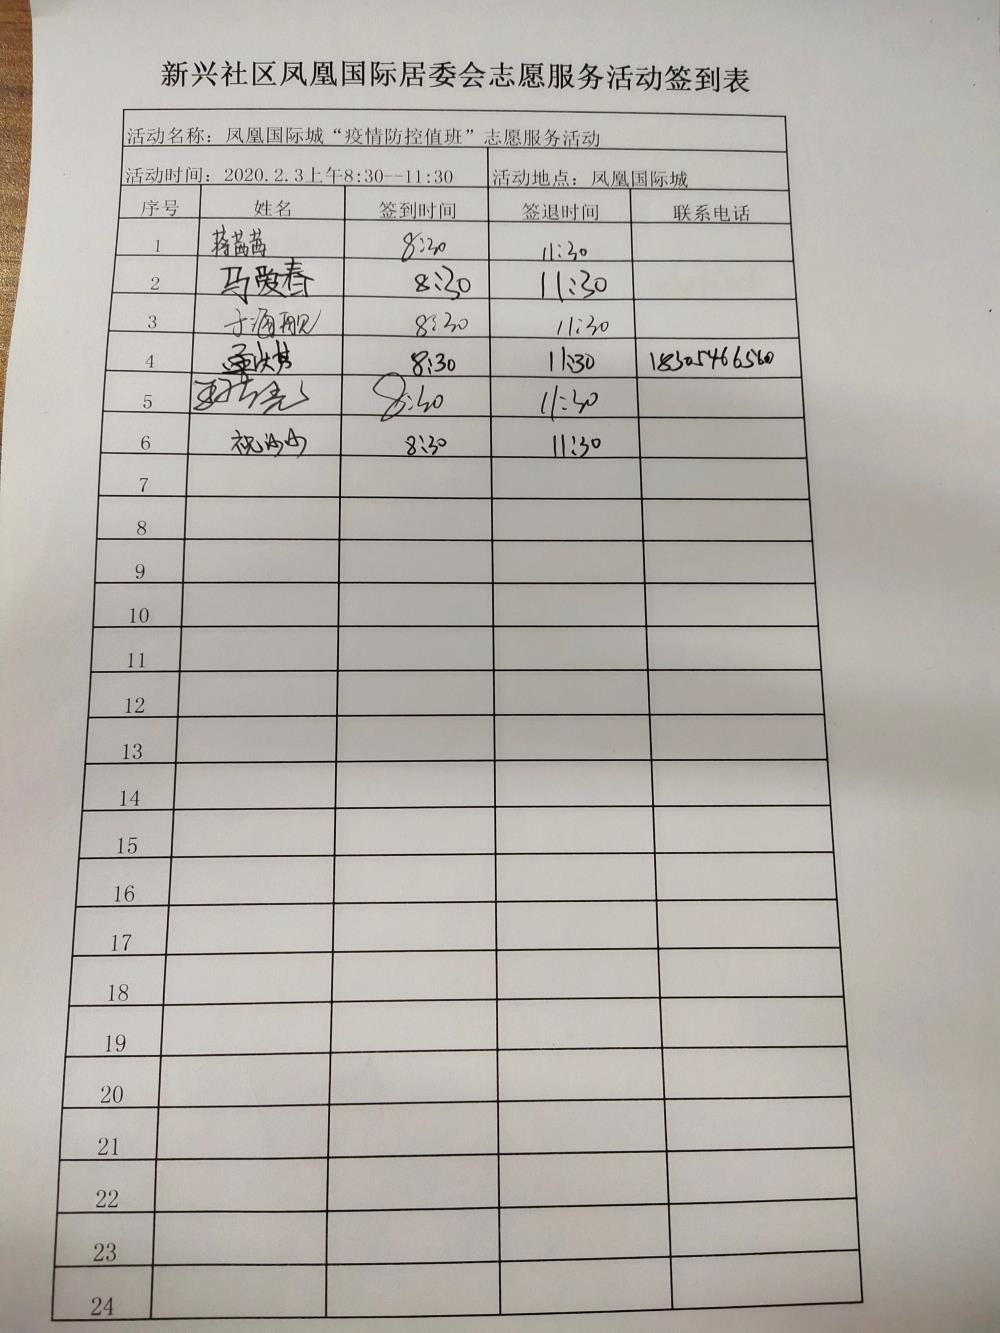 新兴社区凤凰国际居委会志愿服务活动签到表
活动名称：凤凰国际城“疫情防控值班”志愿服务活动
活动时间：2020.2.3上午8:30--11:30 活动地点：凤凰国际城
序号 姓名 签到时间 签退时间 联系电话
1 蒋茜茜 8:30 11:30
2 马爱春 8:30 11:30
3 于海舰 8:30 11:30
4 8:30 11:30 18305466560
5 8:30 11:30
6 祝沙沙 8:30 11:30
7
8
9
10
11
12
13
14
15
16
17
18
19
20
21
22
23
24